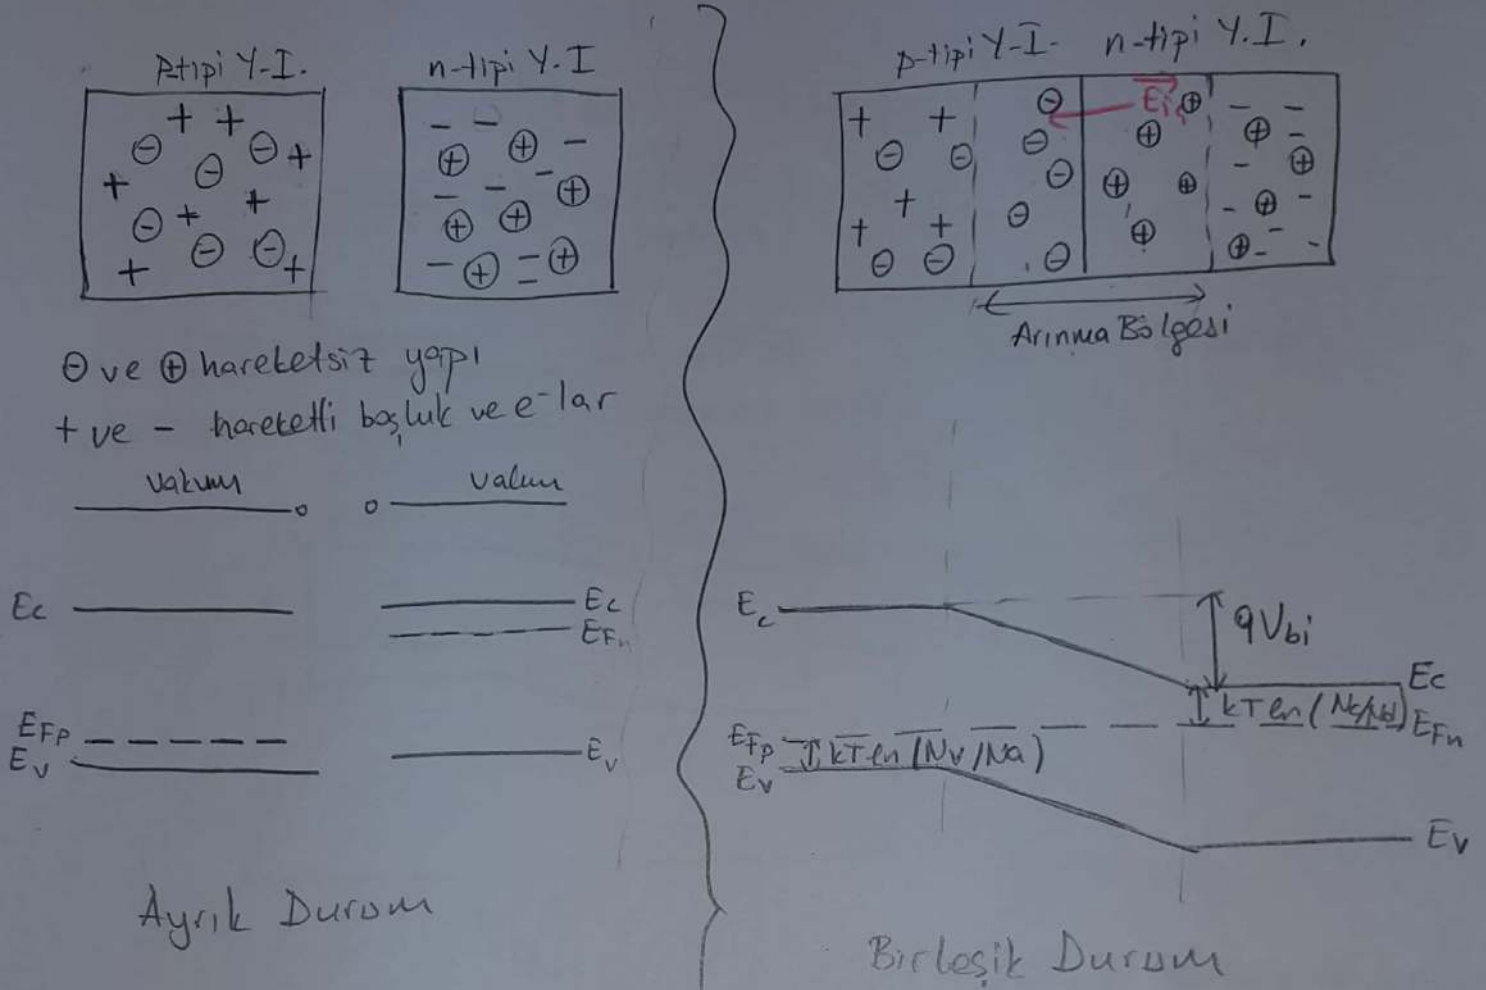 P-tipi Y-I.
n-tipi Y.I
+ + ⊖ ⊖ + ⊖ + ⊖ + + ⊖ ⊖ + +
- - ⊕ ⊕ - - - - ⊕ ⊕ ⊕ - ⊕ - ⊕ -
⊖ ve ⊕ hareketsiz yapı
+ ve - hareketli boşluk ve e-lar
vakum
vakum
Ec
Ec
EFn
EFp
Ev
Ev
Ayrık Durum
p-tipi Y-I. n-tipi Y.I.
Ei
Arınma Bölgesi
Ec
qVbi
Ec
kT ln (Nc/Nd)
EFn
EFp
kT ln (Nv/Na)
Ev
Ev
Birleşik Durum